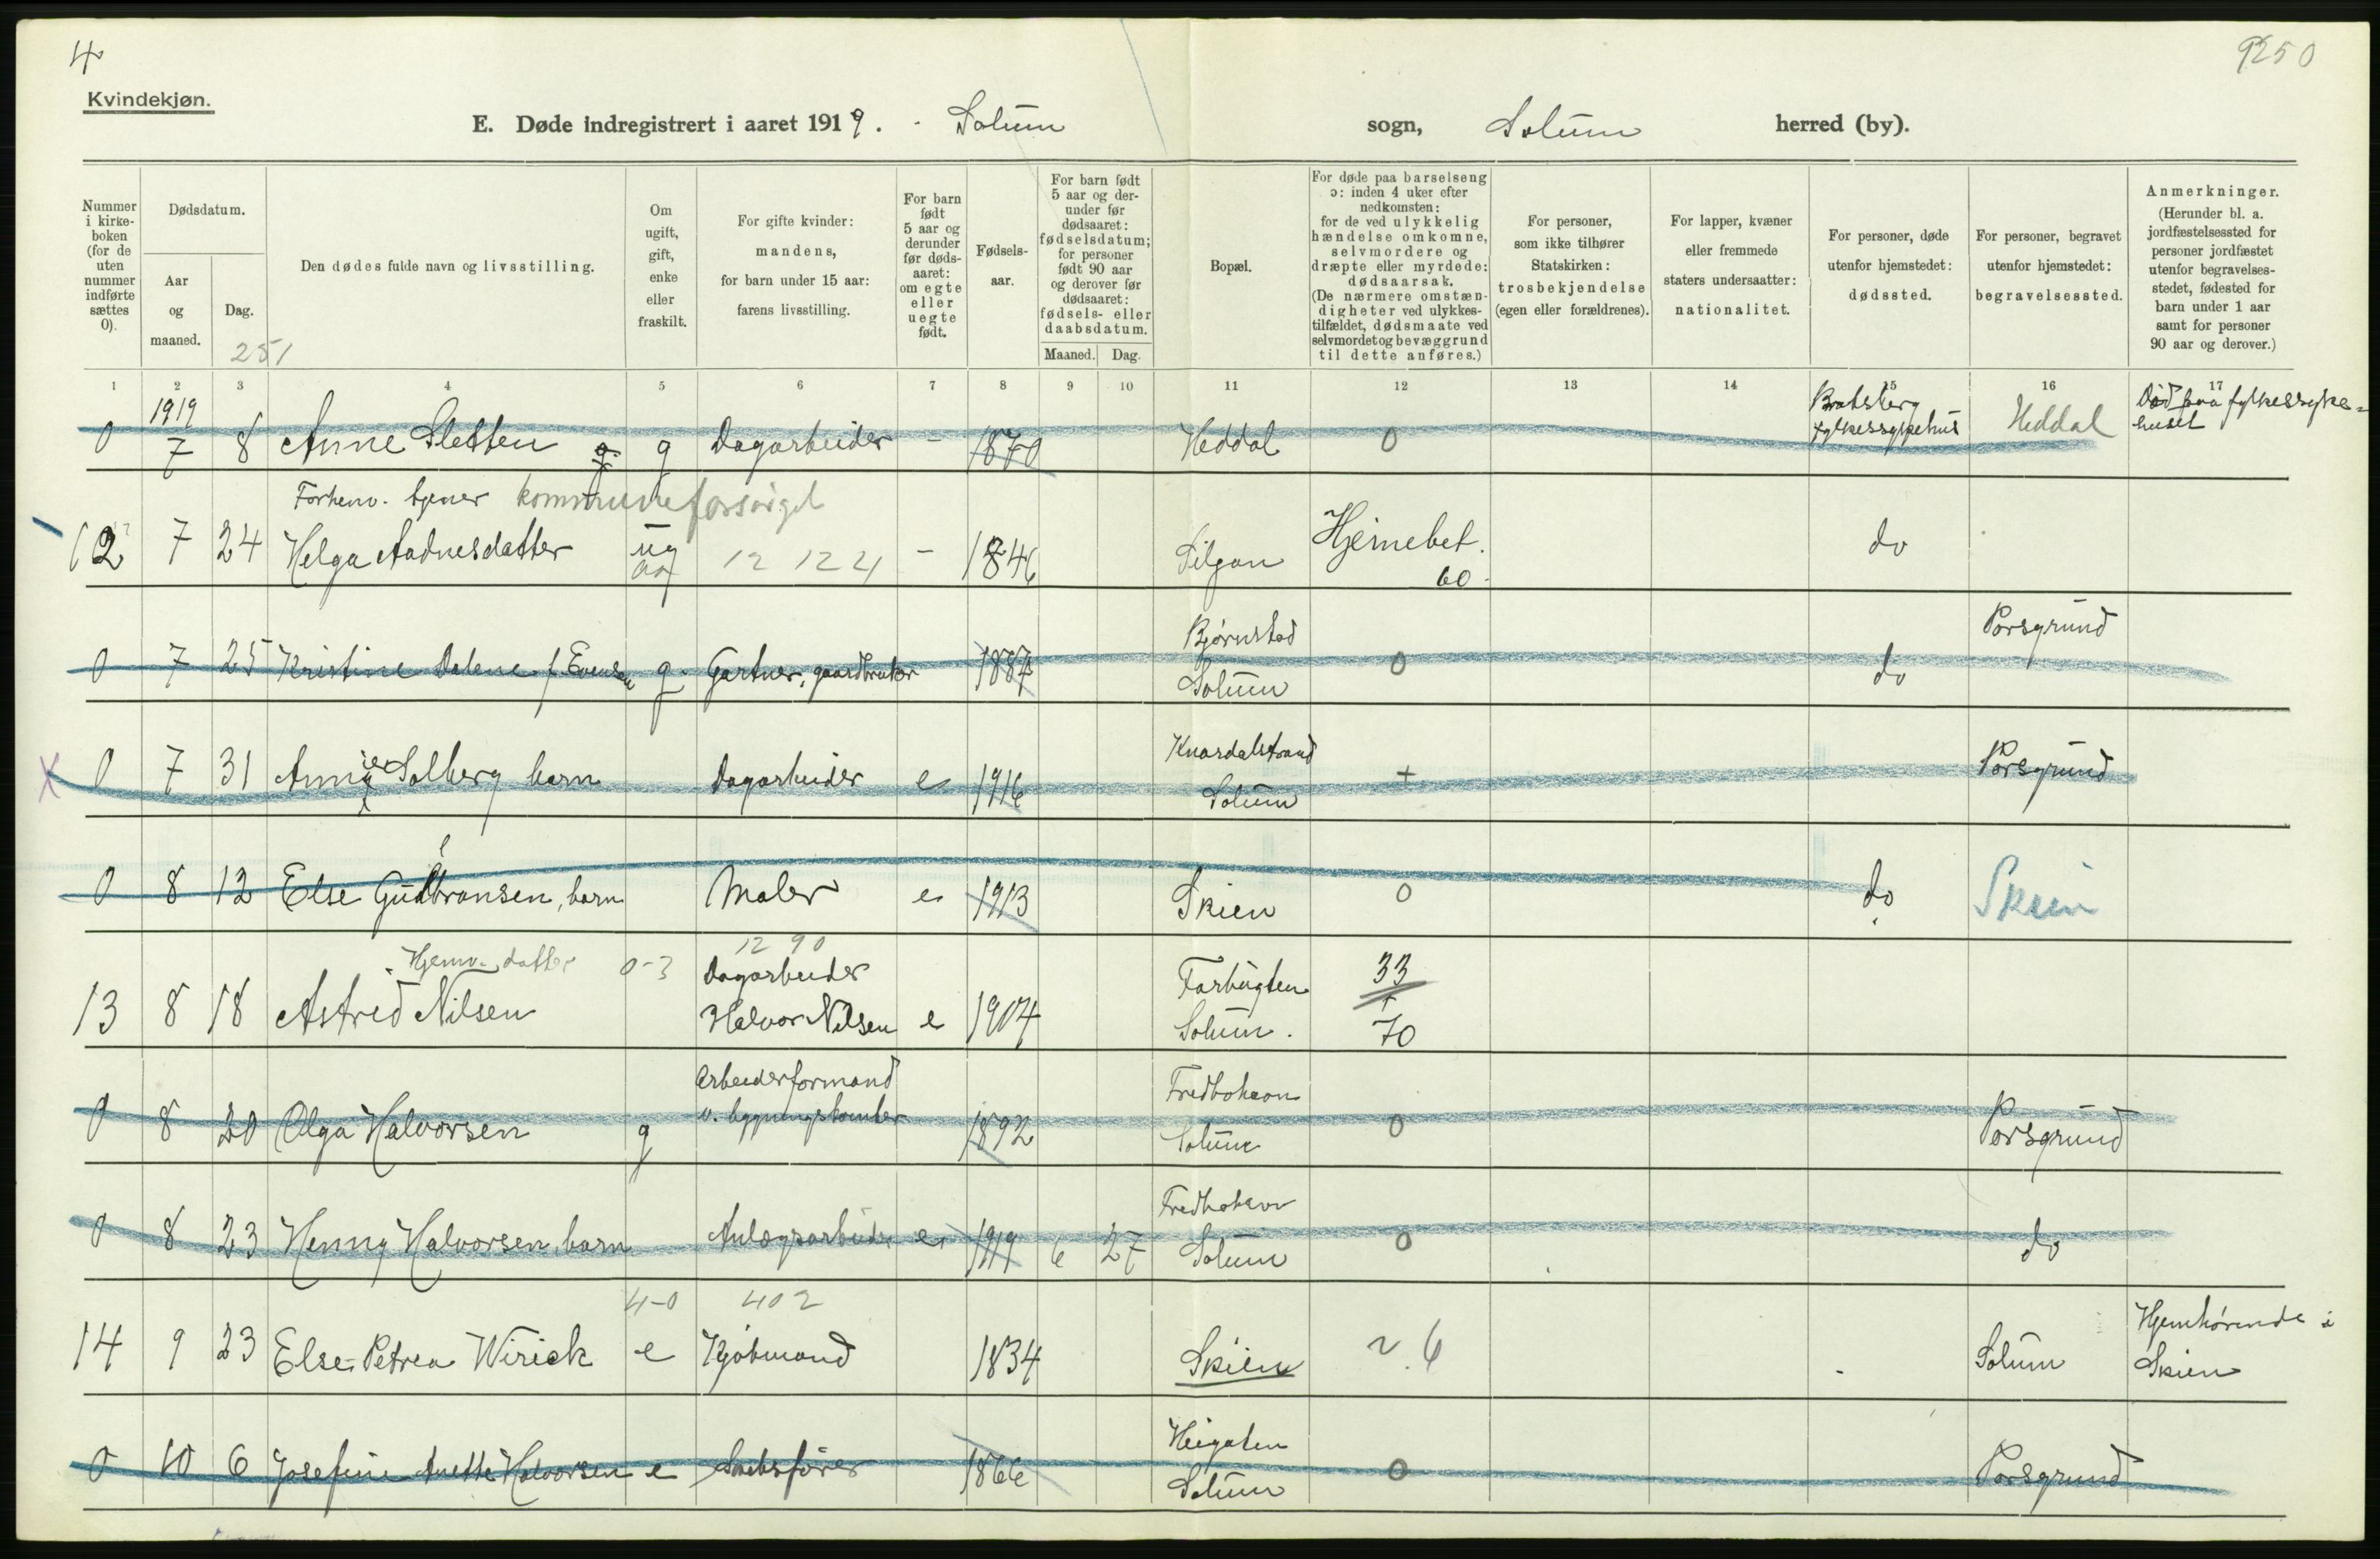 4
9250
Kvindekjøn.
E. Døde indregistrert i aaret 1919. Solum sogn, Solum herred (by).
Nummer i kirke-boken (for de uten nummer indførte sættes 0).
Dødsdatum.
Aar og maaned.
Dag.
251
Den dødes fulde navn og livsstilling.
Om ugift, gift, enke eller fraskilt.
For gifte kvinder: mandens, for barn under 15 aar: farens livsstilling.
For barn født 5 aar og derunder før døds-aaret: om egte eller uegte født.
Fødsels-aar.
For barn født 5 aar og der-under før dødsaaret: fødselsdatum; for personer født 90 aar og derover før dødsaaret: fødsels- eller daabsdatum.
Maaned. Dag.
Bopæl.
For døde paa barselseng ɔ: inden 4 uker efter nedkomsten: for de ved ulykkelig hændelse omkomne, selvmordere og dræpte eller myrdede: dødsaarsak. (De nærmere omstæn-digheter ved ulykkes-tilfældet, dødsmaate ved selvmordet og bevæggrund til dette anføres.)
For personer, som ikke tilhører Statskirken: trosbekjendelse (egen eller forældrenes).
For lapper, kvæner eller fremmede staters undersaatter: nationalitet.
For personer, døde utenfor hjemstedet: dødssted.
For personer, begravet utenfor hjemstedet: begravelsessted.
Anmerkninger. (Herunder bl. a. jordfæstelsessted for personer jordfæstet utenfor begravelses-stedet, fødested for barn under 1 aar samt for personer 90 aar og derover.)
1 2 3 4 5 6 7 8 9 10 11 12 13 14 15 16 17
1919
0 7 8 Anne Sletten g. g Dagarbeider - 1870 Heddal 0 Bratsberg fylkessykehus Heddal Död paa fylkessyke=huset
Forhenv. tjener kommuneforsörget
12 7 24 Helga Aadnesdatter ug 12 12 21 - 1846 Hjernebet. 60. do
0 7 25 Kristine Dalene f. Evensen g. Gartner, gaardbruker 1887 Bjørnstad Solum 0 do Porsgrund
X 0 7 31 Annie Solberg barn Dagarbeider e 1916 Knardalstrand Solum + Porsgrund
0 8 12 Else Gulbransen, barn Maler e 1913 Skien 0 do Skien
Hjemv. datter 0-3 12 90
13 8 18 Astrid Nilsen Dagarbeider Halvor Nilsen e 1904 Solum. 33 + 70
0 8 20 Olga Halvorsen g Arbeiderformand v. bygningskontor 1892 Solum 0 Porsgrund
0 8 23 Henny Halvorsen, barn Anlægsarbeider e 1919 6 27 Solum 0 do
4-0 402
14 9 23 Else Petrea Wirick e Kjøbmand 1834 Skien 2.6 Solum Hjemhørende i Skien
0 10 6 Josefine Anette Halvorsen e 1866 Heigaten Solum 0 Porsgrund